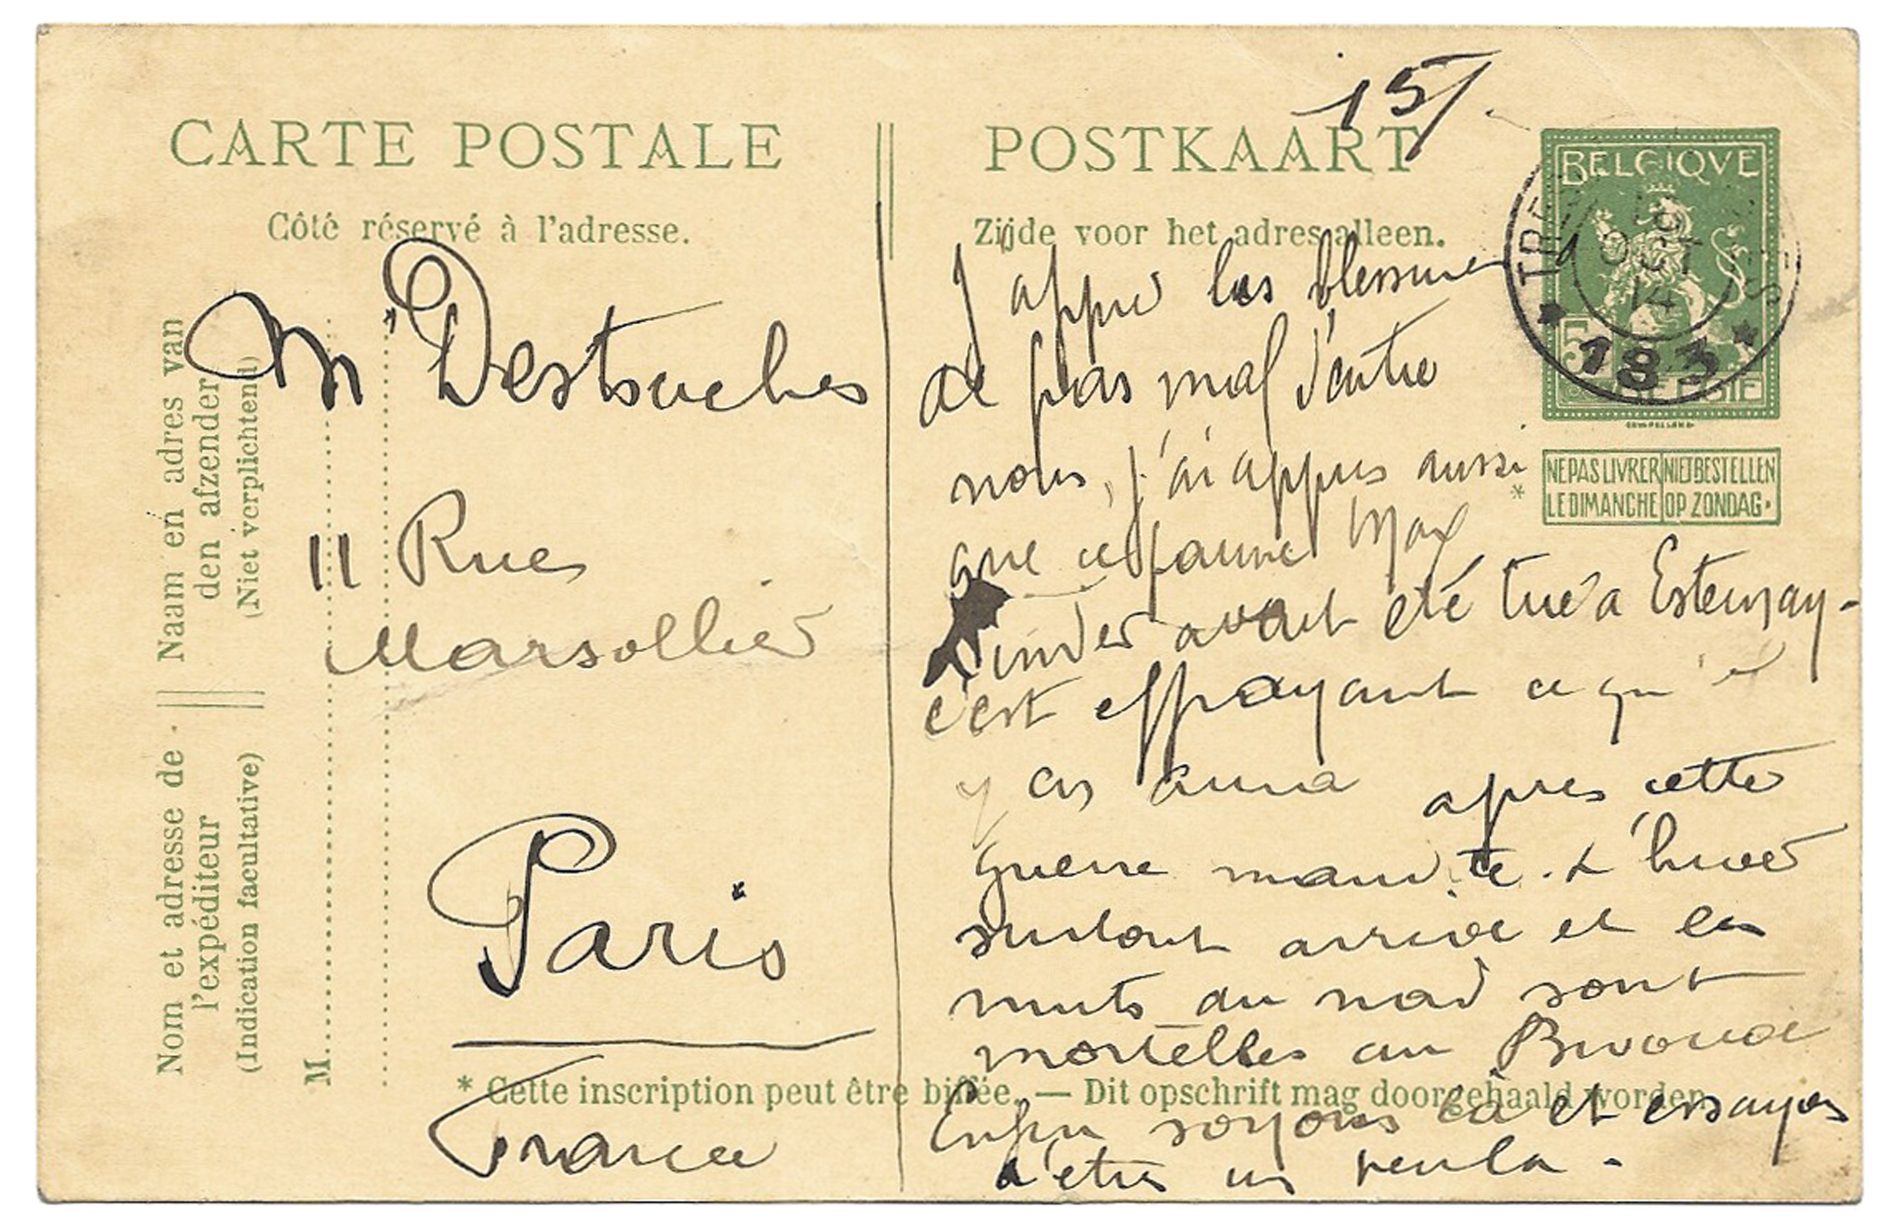 CARTE POSTALE
Côté réservé à l'adresse.
Mr Destouches
11 Rue
Marsollier
Paris
France
Nom et adresse de
l'expéditeur
(Indication facultative)
Naam en adres van
den afzender
(Niet verplichtend)
M
15/.
POSTKAART
Zijde voor het adres alleen.
BELGIQUE
5
BELGIË
OCT
14
183
NE PAS LIVRER NIET BESTELLEN
LE DIMANCHE OP ZONDAG.
*
J appr les blessures
de pas mal d'entre
nous, j'ai appris aussi
que ce pauvre Max
Linder avait été tué a Esternay -
c'est effrayant ce qu'il
y en aura apres cette
guerre maudite. L'hiver
surtout arrive et les
nuits du nord sont
mortelles au Bivouac
Enfin soyons là et essayons
d'etre un peu là.
* Cette inscription peut être biffée. — Dit opschrift mag doorgehaald worden.